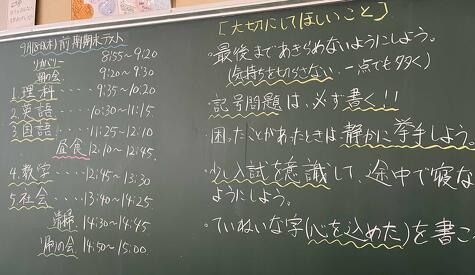 9月18日(木)前期期末テスト
リカバリー 8:55〜9:20
朝の会 9:20〜9:30
1.理科・・・・9:35〜10:20
2.英語・・・・10:30〜11:15
3.国語・・・・11:25〜12:10
昼食 12:10〜12:45
4.数学・・・・12:45〜13:30
5.社会・・・・13:40〜14:25
清掃 14:30〜14:45
帰りの会 14:50〜15:00
[大切にしてほしいこと]
・最後まであきらめないようにしよう。
(気持ちを切らさない、一点でも多く)
・記号問題は、必ず書く!!
・困ったことがあったときは静かに挙手しよう。
・少し入試を意識して、途中で寝な
ようにしよう。
・ていねいな字(心を込めた)を書こ